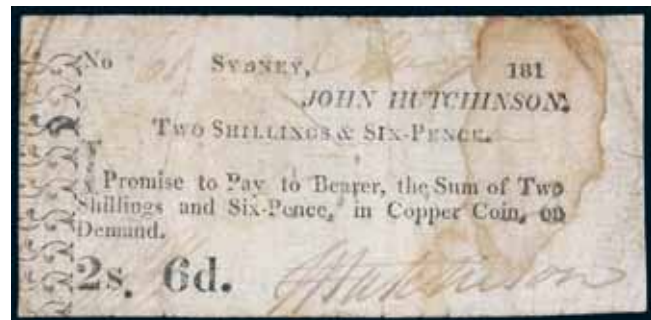 No SYDNEY, 181
JOHN HUTCHINSON.
TWO SHILLINGS & SIX-PENCE.
Promise to Pay to Bearer, the Sum of Two
Shillings and Six-Pence, in Copper Coin, on
Demand.
2s. 6d. J Hutchinson